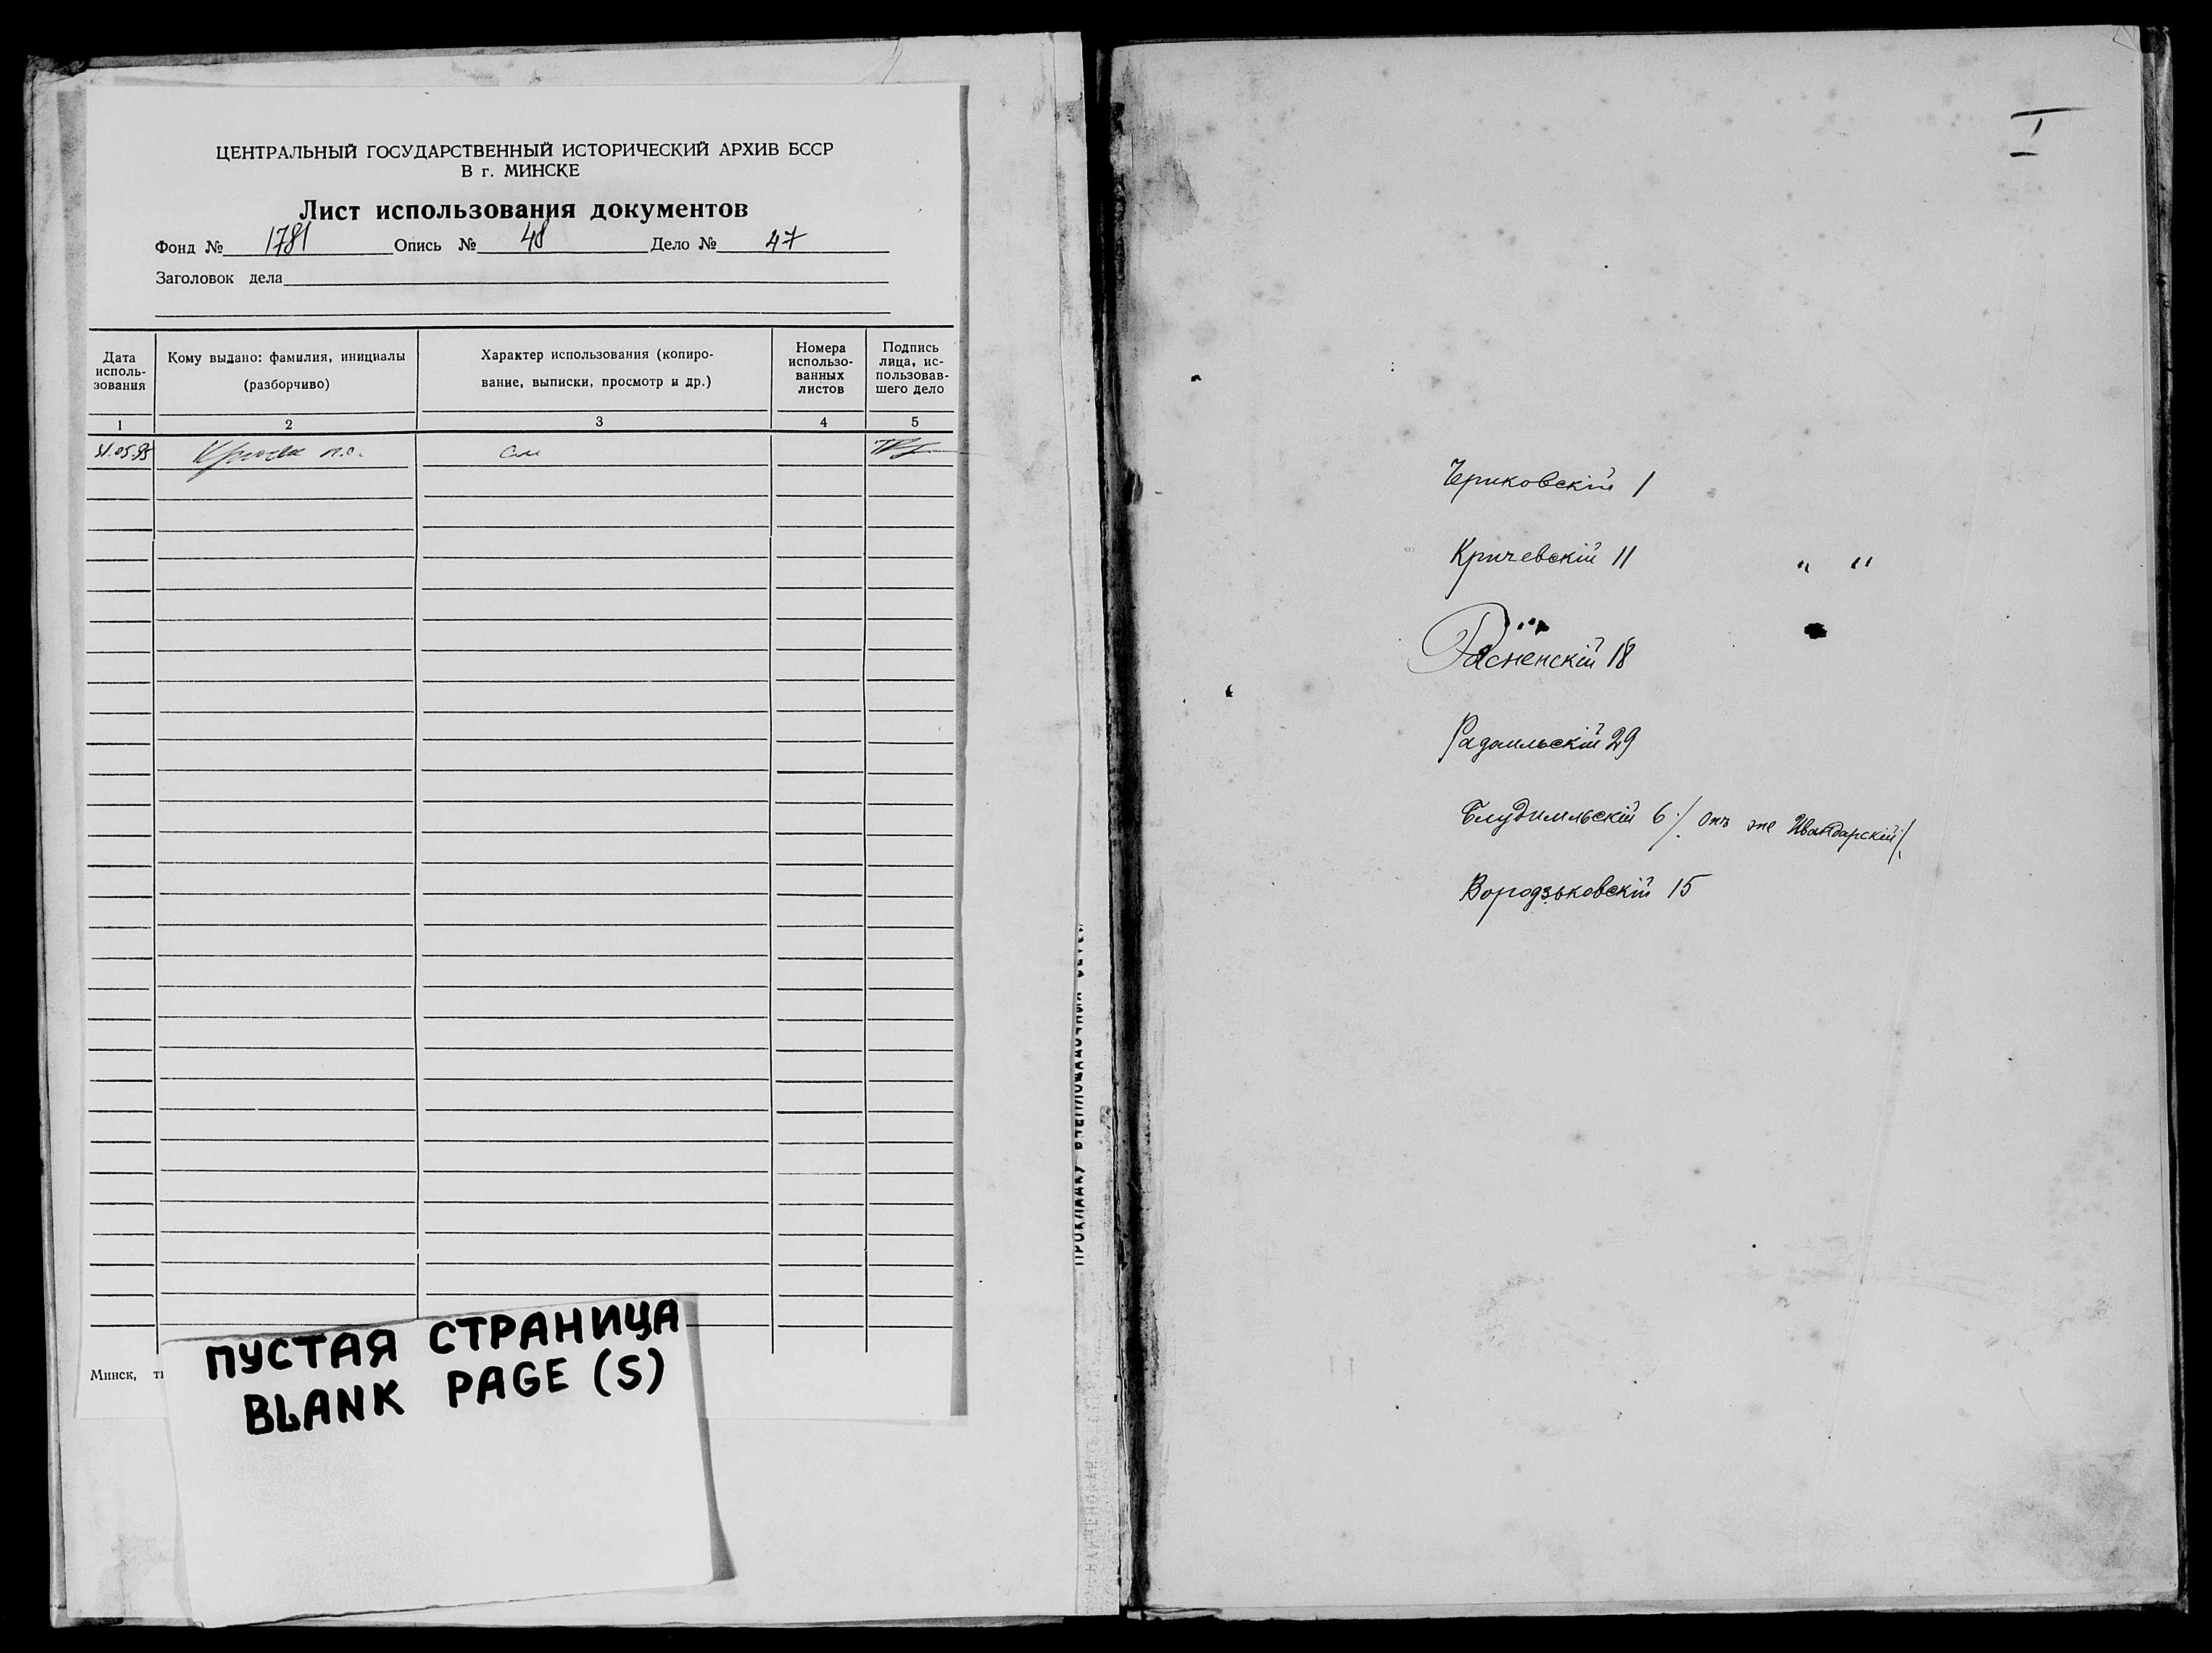 ЦЕНТРАЛЬНЫЙ ГОСУДАРСТВЕННЫЙ ИСТОРИЧЕСКИЙ АРХИВ БССР
В г. МИНСКЕ
Лист использования документов
Фонд № 1781 Опись № 48 Дело № 47
Заголовок дела
Дата исполь-
зования
Кому выдано: фамилия, инициалы
(разборчиво)
Характер использования (копиро-
вание, выписки, просмотр и др.)
Номера
использо-
ванных
листов
Подпись
лица, ис-
пользовав-
шего дело
1 2 3 4 5
Минск,
ПУСТАЯ СТРАНИЦА
BLANK PAGE (S)
I
Чериковскій 1
Кричевскій 11 " "
Расненскій 18
Радомльскій 29
6 / онъ же
15